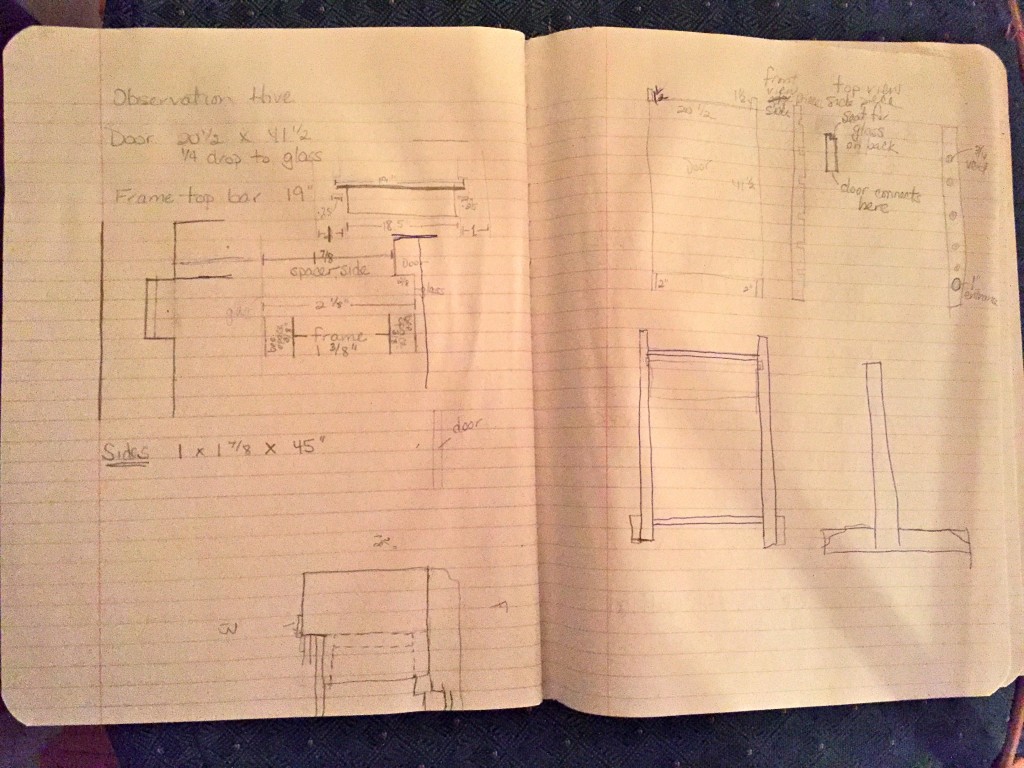 Observation Hive
Door 20 1/2 x 41 1/2
1/4 drop to glass
Frame-top bar 19"
18.5
1 7/8
spacer side
Door
glass
2 1/8"
frame
1 3/8"
Sides 1 x 1 7/8 x 45"
door
1/2
20 1/2
Door
41 1/2
2"
2"
front
view
side
top view
side piece
seat for
glass
on back
door connects
here
3/4
vent
1"
entrance